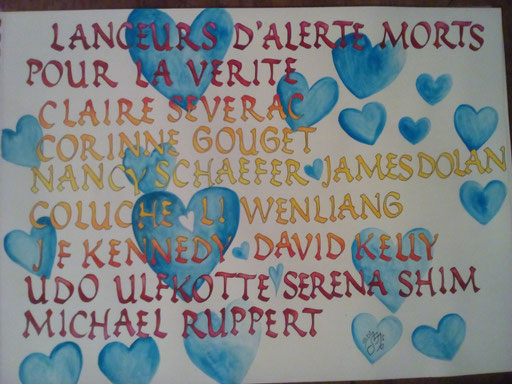 LANCEURS D'ALERTE MORTS
POUR LA VERITE
CLAIRE SEVERAC
CORINNE GOUGET
NANCY SCHAEFER JAMES DOLAN
COLUCHE LI WENLIANG
JF KENNEDY DAVID KELLY
UDO ULFKOTTE SERENA SHIM
MICHAEL RUPPERT